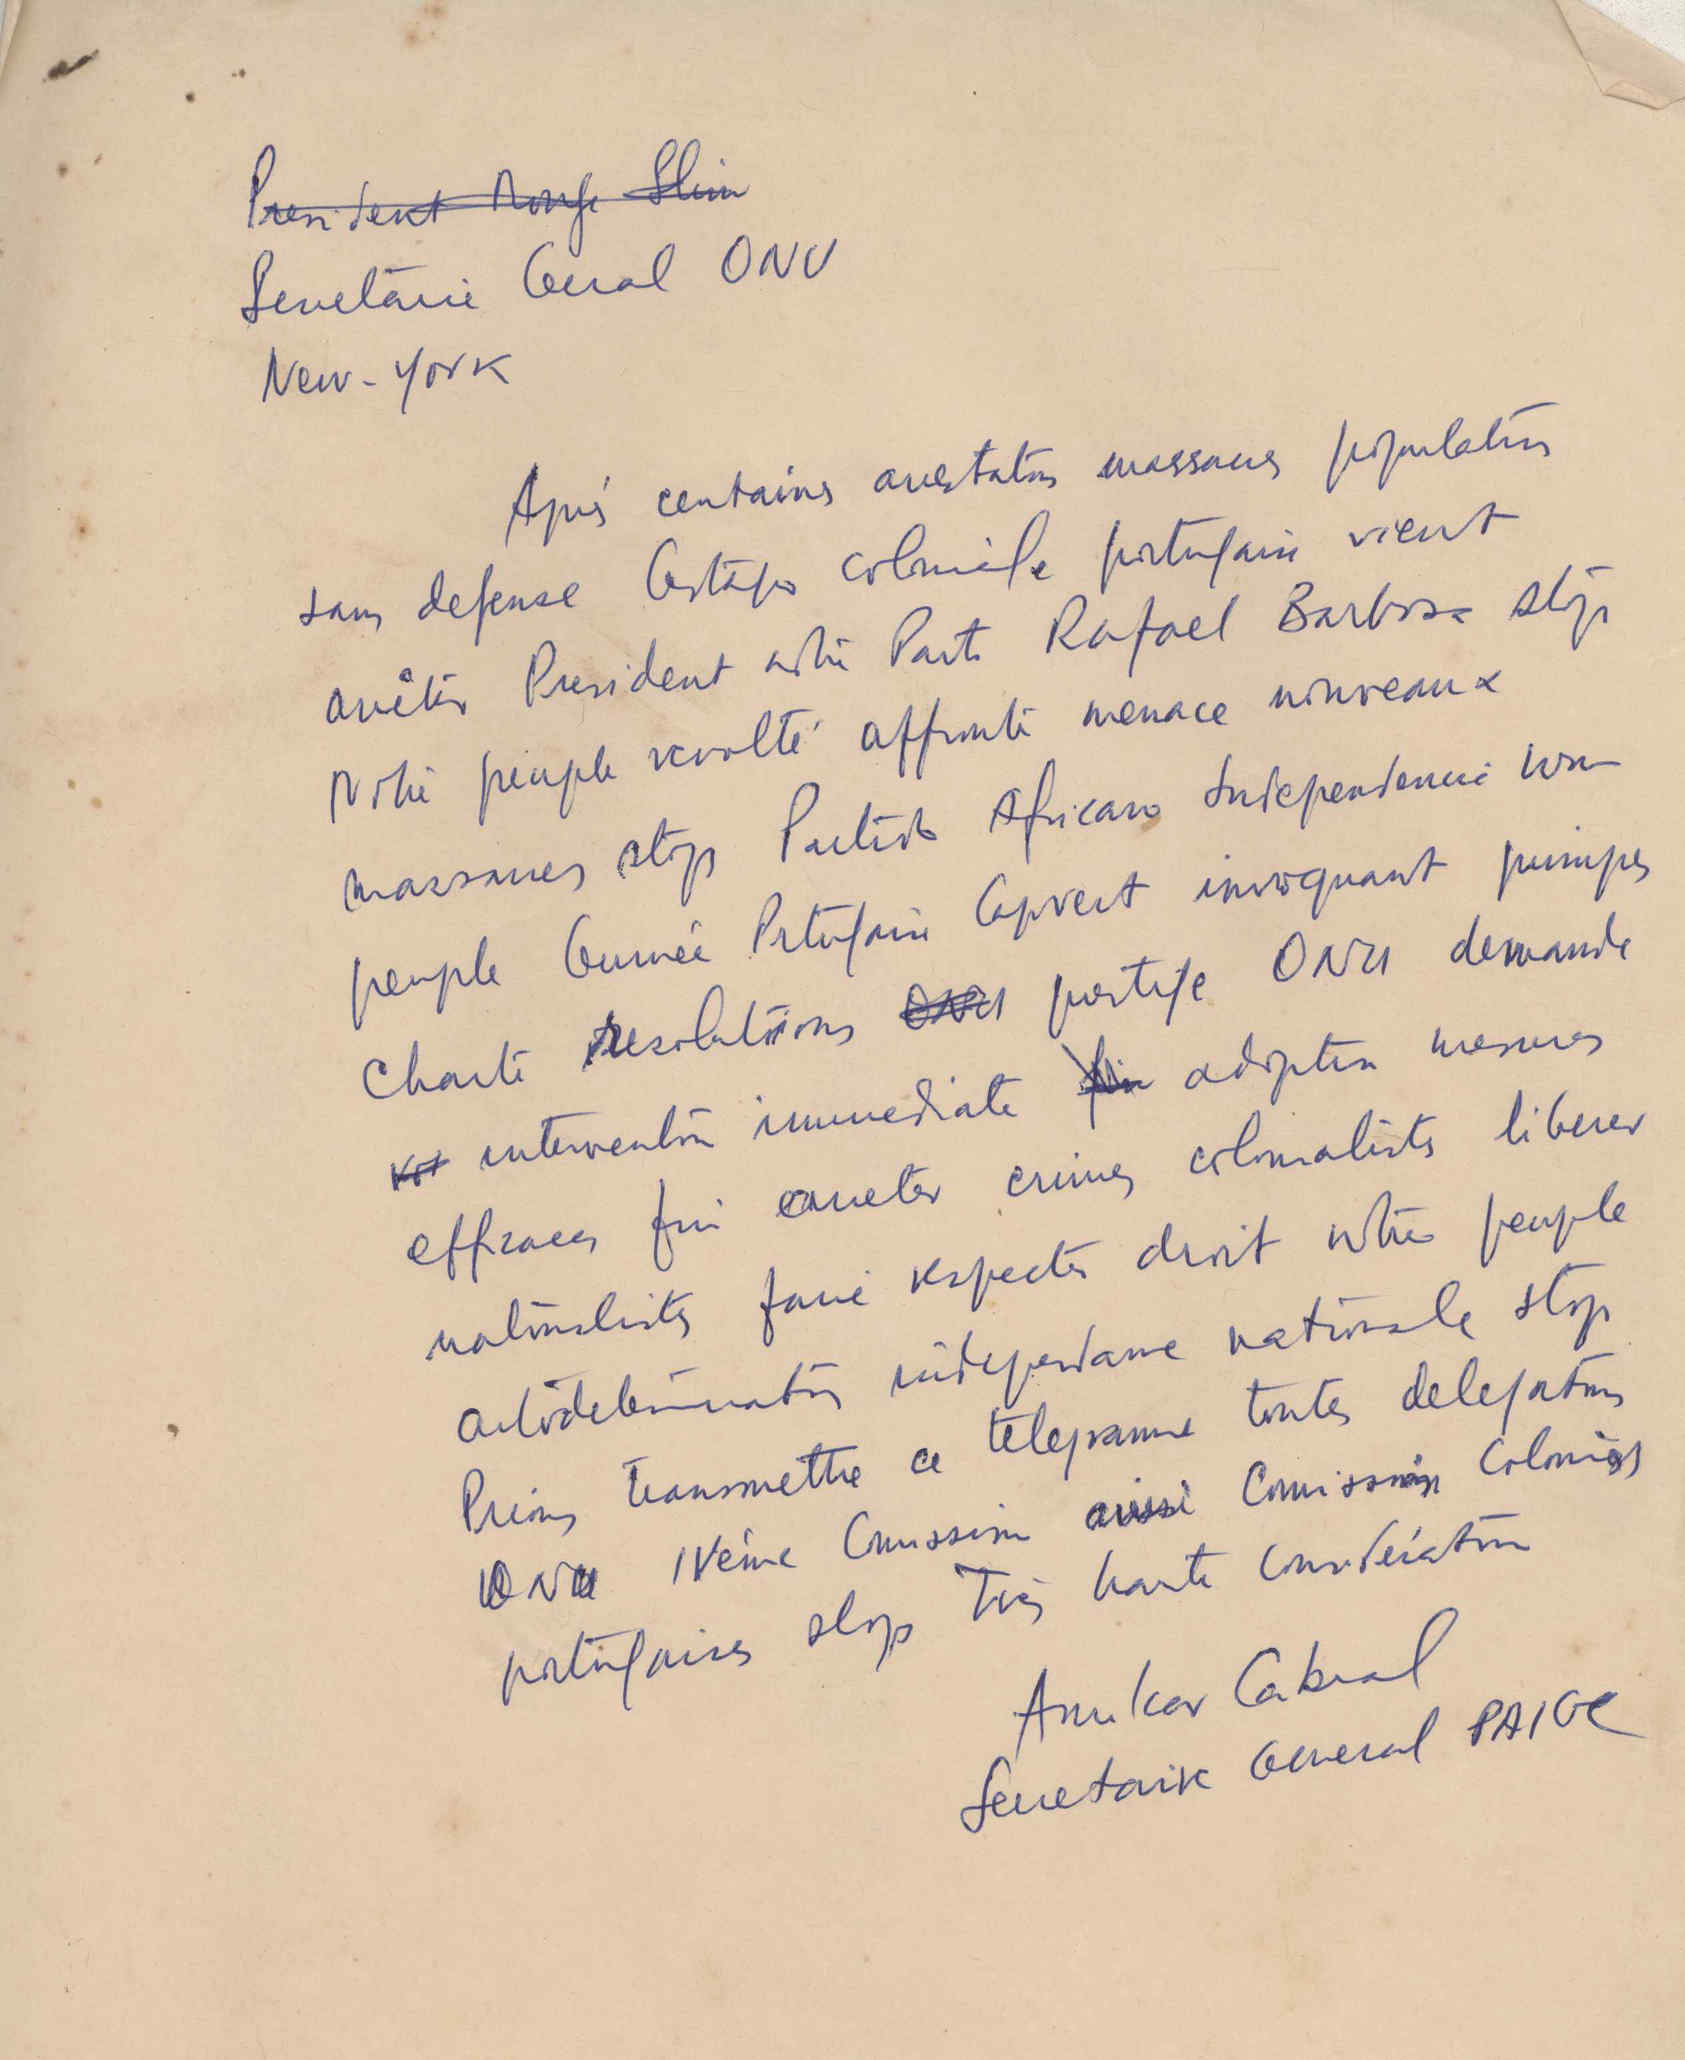 President Mongi Slim
Secretaire General ONU
New-York
Après centaines arrestations massacres populations
sans defense Gestapo coloniale portugaise vient
arrêter President notre Parti Rafael Barbosa stop
Notre peuple revolté affronte menace nouveaux
massacres stop Partido Africano Independencia nom
peuple Guinée Portugaise Capvert invoquant principes
Charte resolutions ONU prestige ONU demande
intervention immediate fin adoption mesures
efficaces fin arreter crimes colonialistes liberer
nationalistes faire respecter droit notre peuple
autodetermination independance nationale stop
Prions transmettre ce telegramme toutes delegations
ONU IVème Commission aussi Comission Colonies
portugaises stop Très haute consideration
Amilcar Cabral
Secretaire General PAIGC